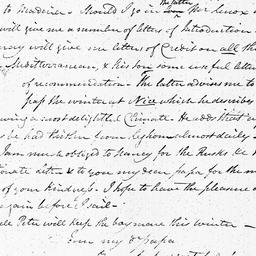 the latter
to Madeira - Should I go in
will give me a number of letters of Introduction
will give me letters of Credit on all the
Mediterranean, & his son some useful letters
of recommendation - The latter advises me to
pass the winter at Nice which he describes
a most delightful Climate He adds that
he had from Leghorn almost daily
I am much obliged to for the Rusks &c
& to you my dear papa, for the
of your kindness. I hope to have the pleasure
again before I sail -
Peter will keep the bay mare this winter -
my Dr Papa